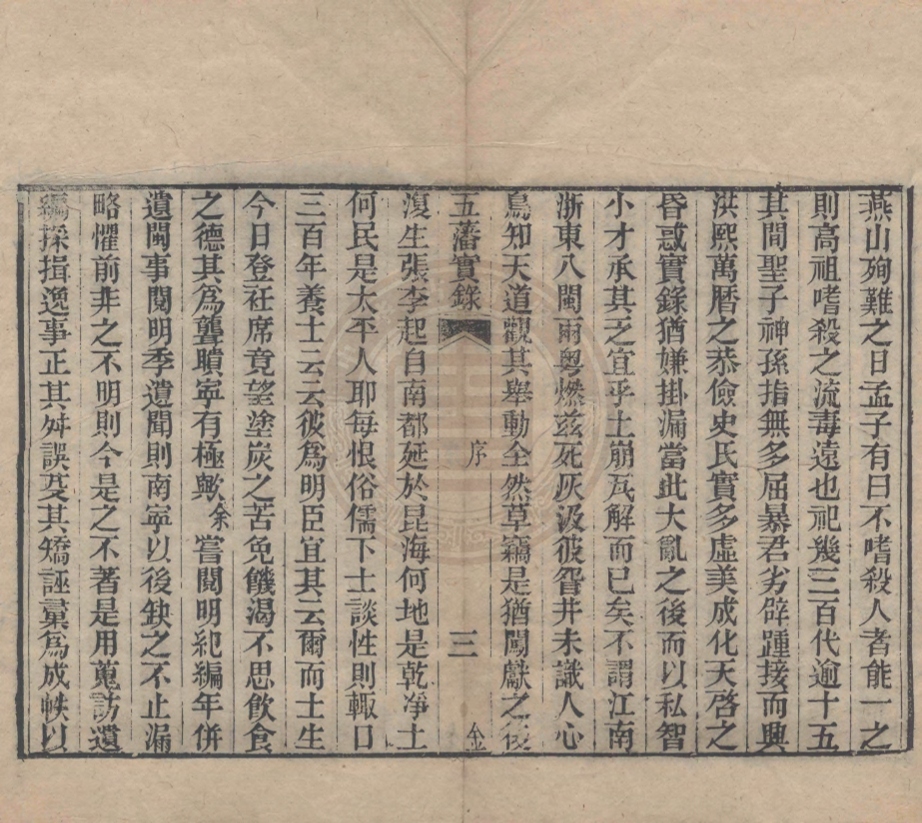 燕山殉難之日孟子有曰不嗜殺人者能一之
則高祖嗜殺之流毒遠也祀幾三百代逾十五
其間聖子神孫指無多屈暴君劣辟踵接而興
洪熙萬曆之恭儉史氏實多虛美成化天啓之
昏惑實錄猶嫌掛漏當此大亂之後而以私智
小才承其乏宜乎土崩瓦解而已矣不謂江南
浙東八閩兩粵燃茲死灰汲彼眢井未識人心
烏知天道觀其舉動全然草竊是猶闖獻之後
五藩實錄 序 三 金
復生張李起自南都延於昆海何地是乾凈土
何民是太平人耶每恨俗儒下士談性則輒曰
三百年養士云云彼為明臣宜其云爾而士生
今日登袵席竟望塗炭之苦免饑渴不思飲食
之德其為聾聵寧有極歟余嘗閱明紀編年併
遺聞事閱明季遺聞則南寧以後缺之不止漏
略懼前非之不明則今是之不著是用蒐訪遺
編採揖逸事正其舛誤芟其矯誣彙為成帙以